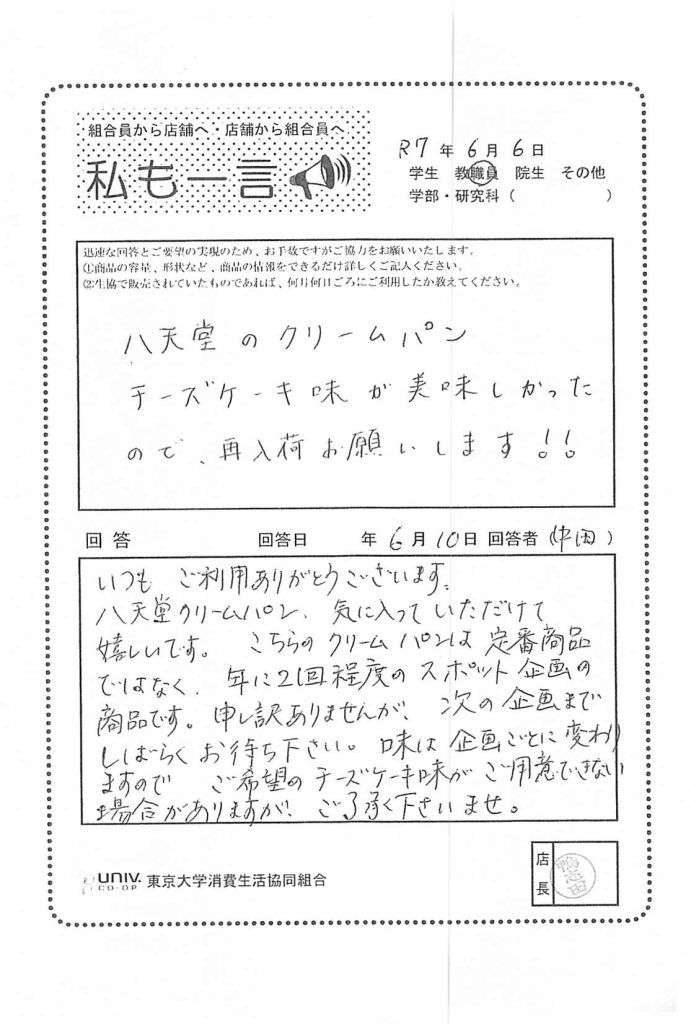 組合員から店舗へ・店舗から組合員へ
私も一言
R7年6月6日
学生 教職員 院生 その他
学部・研究科( )
迅速な回答とご要望の実現のため、お手数ですがご協力をお願いいたします。
①商品の容量、形状など、商品の情報をできるだけ詳しくご記入ください。
②生協で販売されていたものであれば、何月何日ごろにご利用したか教えてください。
八天堂のクリームパン
チーズケーキ味が美味しかった
ので、再入荷お願いします!!
回答 回答日 年6月10日 回答者(中田)
いつも ご利用ありがとうございます。
八天堂クリームパン、気に入っていただけて
嬉しいです。 こちらのクリームパンは定番商品
ではなく、年に2回程度のスポット企画の
商品です。申し訳ありませんが、次の企画まで
しばらくお待ち下さい。味は企画ごとに変わり
ますので ご希望のチーズケーキ味がご用意できない
場合がありますが、ご了承下さいませ。
UNIV. CO-OP 東京大学消費生活協同組合
店長